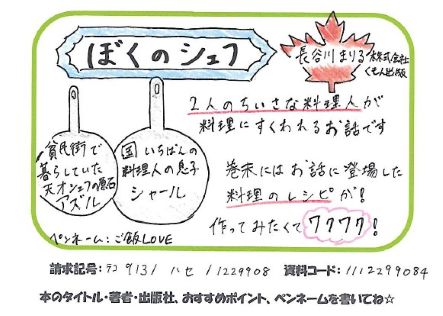 ぼくのシェフ
長谷川まりる
株式会社
くもん出版
2人のちいさな料理人が
料理にすくわれるお話です
貧民街で
暮らしていた
天才シェフの原石
アズル
国いちばんの
料理人の息子
シャール
巻末にはお話に登場した
料理のレシピが!
作ってみたくてワクワク!
ペンネーム:ご飯LOVE
請求記号:テコ 913 ハセ 11229908 資料コード:1112299084
本のタイトル・著者・出版社、おすすめポイント、ペンネームを書いてね☆